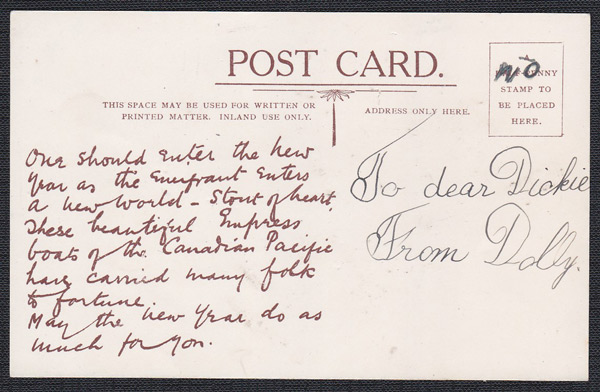 POST CARD.
THIS SPACE MAY BE USED FOR WRITTEN OR
PRINTED MATTER. INLAND USE ONLY.
ADDRESS ONLY HERE.
NO
STAMP TO
BE PLACED
HERE.
One should enter the New
Year as the Emigrant Enters
a New World – Stout of heart.
These beautiful Empress
boats of the Canadian Pacific
have carried many folk
to fortune.
May the New Year do as
much for you.
To dear Dickie
From Dolly.